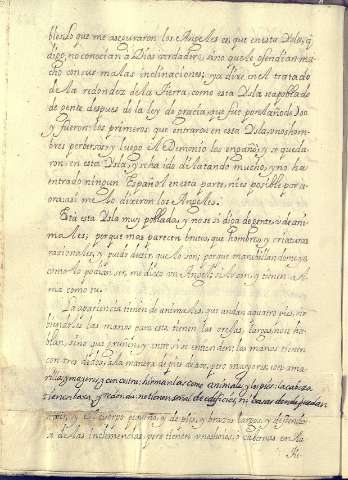 blo. Lo que me aseguraron los Angeles es, que en esta Ysla, q̃
digo, no conocian a Dios verdadero, sino que le ofendian mu
cho con sus malas inclinaciones; ya dixe en el tratado
de la redondez de la tierra, como esta Ysla na poblada
de gente despues de la ley de gracia, que fue por el año de 300
y fueron los primeros que entraron en esta Ysla, unos hom
bres perversos; y luego el Demonio los engaño, y se queda
ron en esta Ysla, y se ha ido dilatando mucho, y no ha
entrado ningun Español en esta parte, ni es posible por a
ora, assi me lo dixeron los Angeles.
Està esta Ysla muy poblada, y no sè si diga de gente, ò de ani
males; porque mas parecen brutos, que hombres, y criaturas
racionales, y pude decir, que lo son; porque
como lo podian ser, me dixo un Angel: si lo son, y tienen Al
ma como tu.
La apariencia tienen de animales, que andan à quatro pies, no
las manos para esta tienen las orejas largas, no ha
blan, sino que gruñen, y entre si se entienden: las manos tienen
con tres dedos, a la manera de pies de ave, pero mayores, son ama
rillas, y mayores; y con cuatro: hirman las como animales, y los pies: la cabeza
tienen baxa, y redonda: no tienen señal de edificios, ni casas donde puedan
y el cuerpo pequeño, y de pies, y brazos largos, y defiende
se de las inclemencias, pero tienen cabernas en la